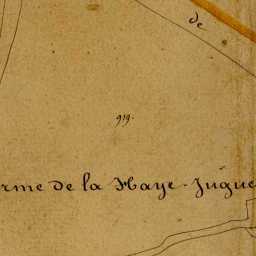 de
919.
erme de la Haye-Jugue